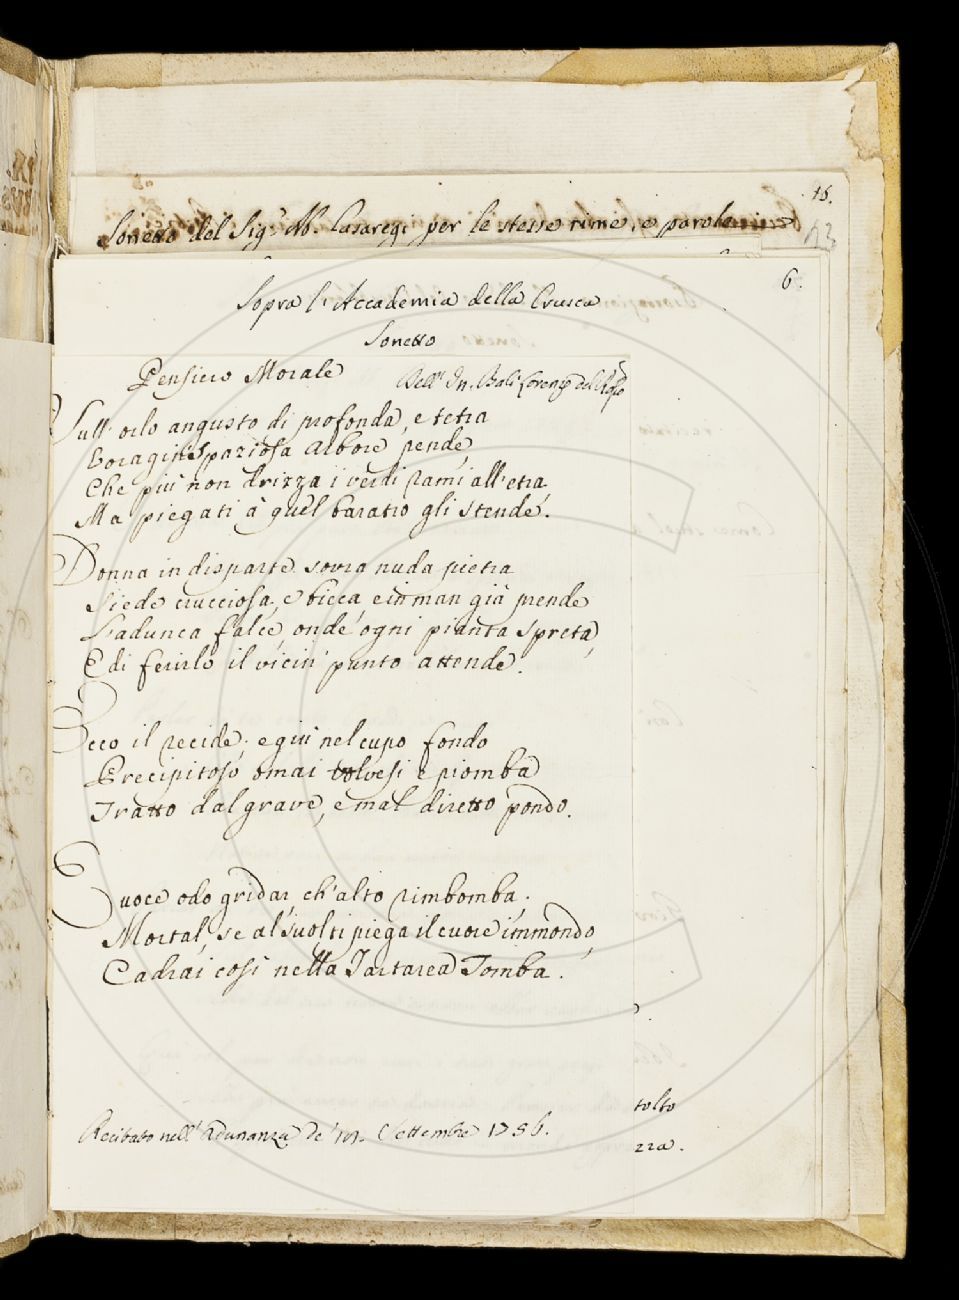 16.
43
Sonetto del Sig.r Ab. Casaregi per le stesse rime, e parole
6.
Sopra l'Accademia della Crusca
Sonetto
Pensiero Morale
Dell' In. Balì Lorenzo del Rosso
Sull' orlo angusto di profonda, e tetra
Voragine spaziosa Albore pende,
Che più non drizza i verdi rami all'etra,
Ma piegati à quel baratro gli stende.
Donna in disparte sovra nuda pietra
Siede crucciosa, e bieca e in man già prende
L'adunca falce, onde ogni pianta spretra,
E di ferirlo il vicin' punto attende.
Ecco il recide; e giù nel cupo fondo
Precipitoso omai volvesi e piomba
Tratto dal grave, e mal diretto pondo.
E voce odo gridar, ch'alto rimbomba,
Mortal, se al suol ti piega il cuore immondo,
Cadrai così nella Tartarea Tomba.
tolto
Recitato nell' Adunanza de' Settembre 1756.
zza.